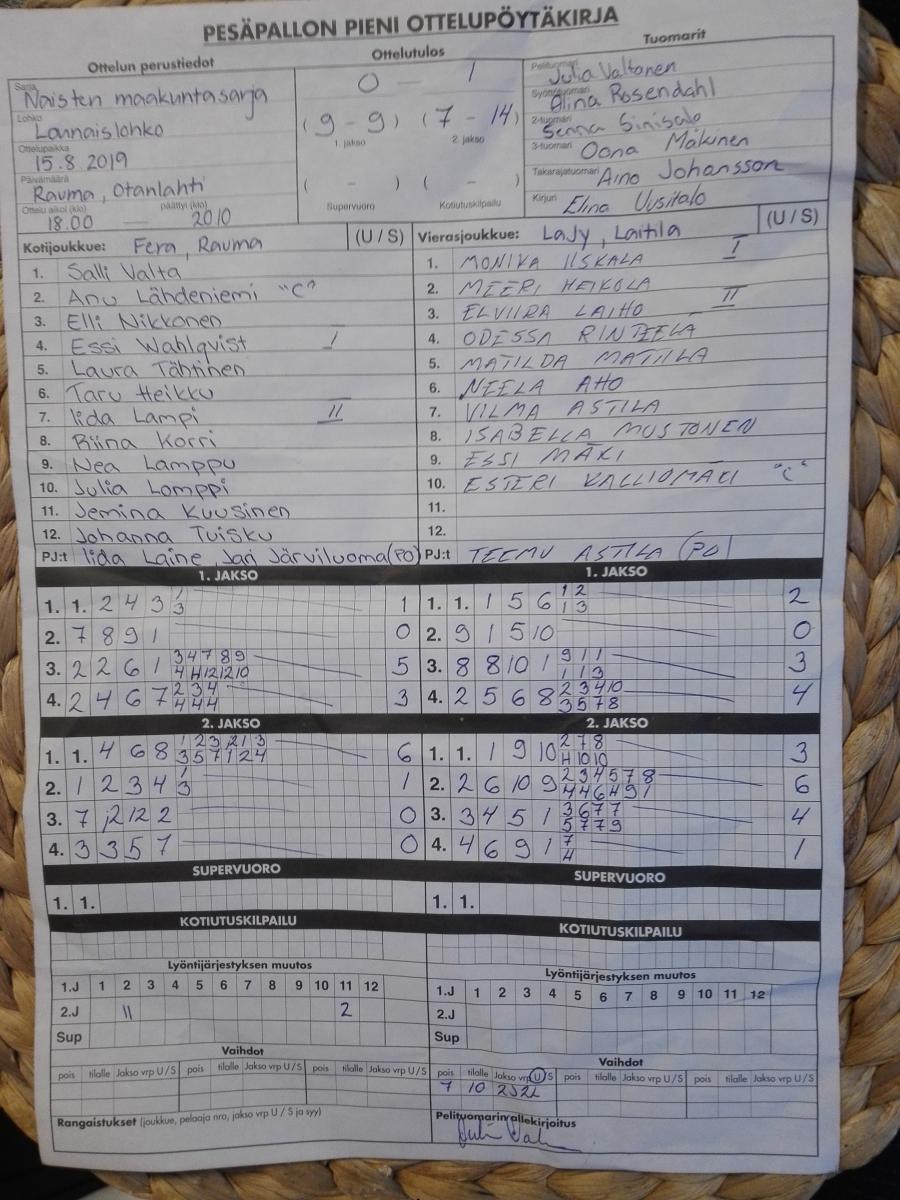 PESÄPALLON PIENI OTTELUPÖYTÄKIRJA
Ottelun perustiedot
Sarja
Naisten maakuntasarja
Lohko
Lounaislohko
Ottelupaikka
15.8.2019
Päivämäärä
Rauma, Otanlahti
Ottelu alkoi (klo) päättyi (klo)
18.00 — 2010
Ottelutulos
0 — 1
(9 - 9) (7 - 14)
1. jakso 2. jakso
( - ) ( - )
Supervuoro Kotiutuskilpailu
Tuomarit
Pelituomari Julia Valtonen
Syöttötuomari Alina Rosendahl
2-tuomari Senna Sinisalo
3-tuomari Oona Mäkinen
Takarajatuomari Aino Johansson
Kirjuri Elina Uusitalo
Kotijoukkue: Fera, Rauma (U / S)
1. Salli Valta
2. Anu Lähdeniemi "C"
3. Elli Nikkonen
4. Essi Wahlqvist I
5. Laura Tähtinen
6. Taru Heikku
7. Iida Lampi II
8. Riina Korri
9. Nea Lamppu
10. Julia Lomppi
11. Jemina Kuusinen
12. Johanna Tuisku
PJ:t Iida Laine, Jari Järviluoma (PO)
Vierasjoukkue: LaJy, Laitila (U / S)
1. MONIKA IISKALA I
2. MEERI HEIKOLA
3. ELVIIRA LAIHO II
4. ODESSA RINTEELA
5. MATILDA MATTILA
6. NEELA AHO
7. VILMA ASTILA
8. ISABELLA MUSTONEN
9. ESSI MÄKI
10. ESTERI KALLIOMÄKI "C"
11.
12.
PJ:t TEEMU ASTILA (PO)
1. JAKSO
1. 1. 2 4 3 1 3 1
2. 7 8 9 1 0
3. 2 2 6 1 3 4 7 8 9 4 11 12 12 10 5
4. 2 4 6 7 2 3 4 4 4 4 3
1. JAKSO
1. 1. 1 5 6 1 2 1 3 2
2. 9 1 5 10 0
3. 8 8 10 1 9 1 1 1 1 3 3
4. 2 5 6 8 2 3 4 10 3 5 7 8 4
2. JAKSO
1. 1. 4 6 8 1 2 3 12 1 3 3 5 7 1 2 4 6
2. 1 2 3 4 1 3 1
3. 7 12 12 2 0
4. 3 3 5 7 0
2. JAKSO
1. 1. 1 9 10 2 7 8 4 10 10 3
2. 2 6 10 9 2 3 4 5 7 8 4 4 6 4 9 1 6
3. 3 4 5 1 3 6 7 7 5 7 7 9 4
4. 4 6 9 1 7 4 1
SUPERVUORO
1. 1.
SUPERVUORO
1. 1.
KOTIUTUSKILPAILU
KOTIUTUSKILPAILU
Lyöntijärjestyksen muutos
1.J 1 2 3 4 5 6 7 8 9 10 11 12
2.J 11 2
Sup
Lyöntijärjestyksen muutos
1.J 1 2 3 4 5 6 7 8 9 10 11 12
2.J
Sup
Vaihdot
pois tilalle Jakso vrp U / S pois tilalle Jakso vrp U / S pois tilalle Jakso vrp U / S
Rangaistukset (joukkue, pelaaja nro, jakso vrp U / S ja syy)
Vaihdot
pois tilalle Jakso vrp U / S pois tilalle Jakso vrp U / S pois tilalle Jakso vrp U / S
7 10
Pelituomarin allekirjoitus